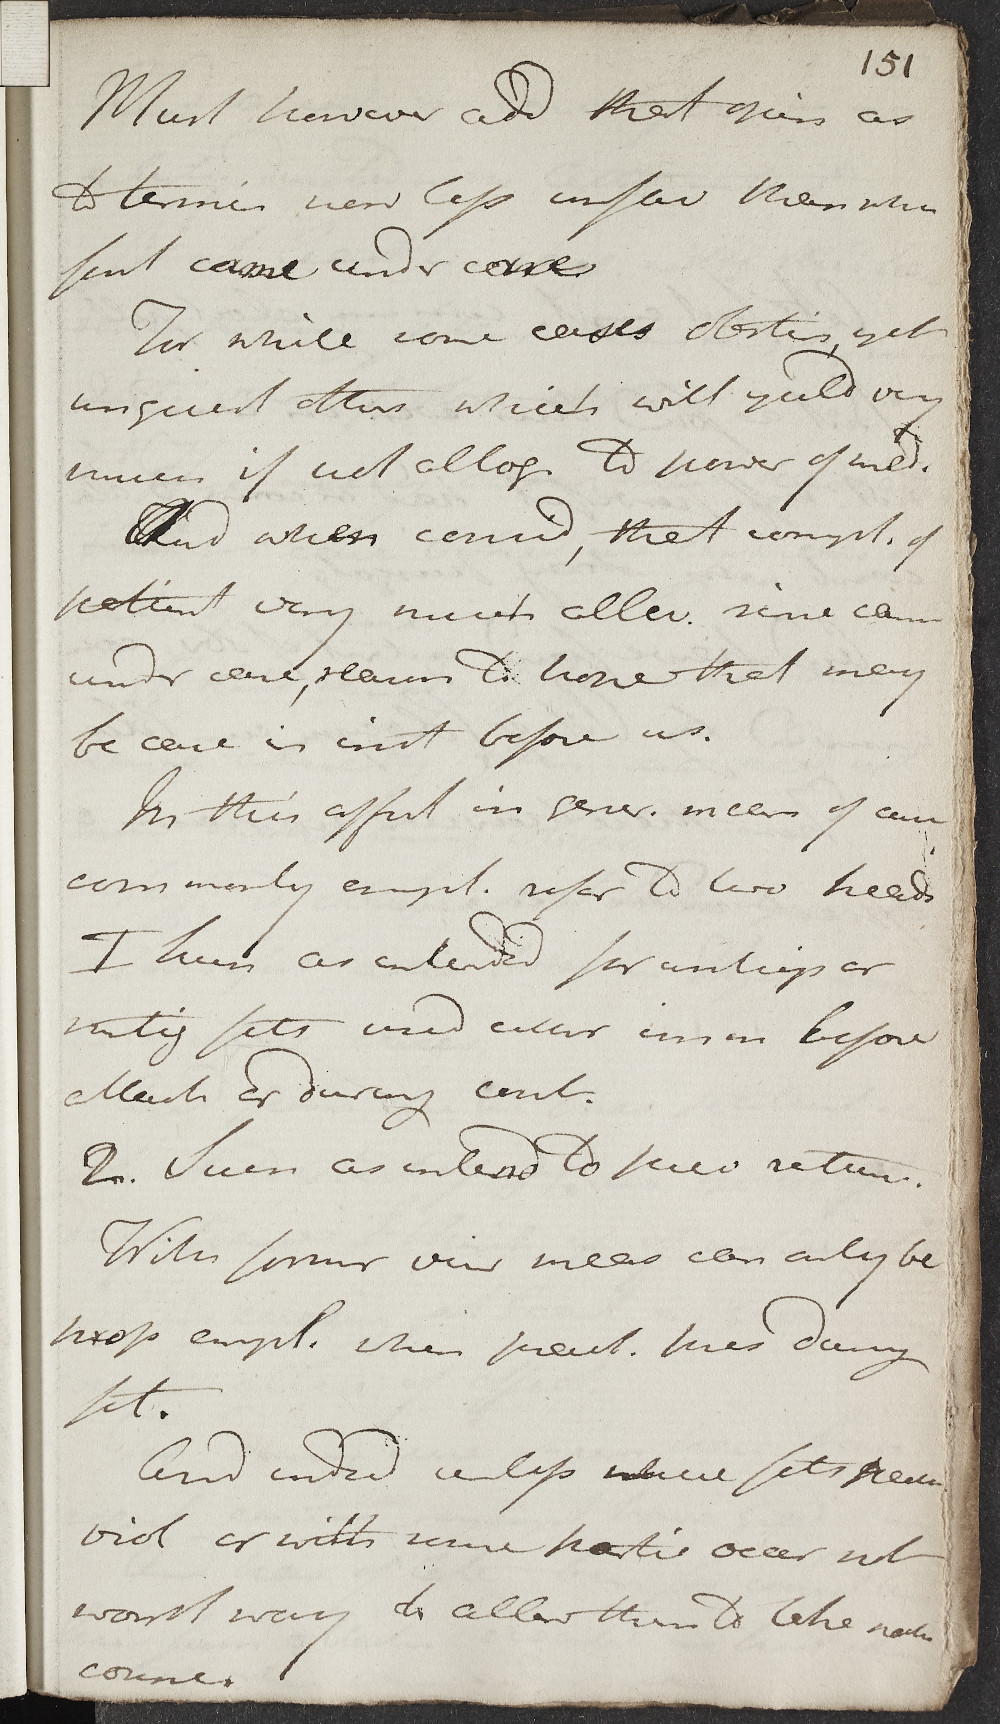 151
Must however add that opin as
to termin now less unfav than when
first came under care
For while some cases obstin, yet
unquest others which will yield very
much if not altog. to power of med.
And when consid, that compl. of
patient very much allev. since came
under care, reason to hope that may
be case in inst before us.
In this affect in gener. means of cure
commonly empl. refer to two heads
I Such as intended for
mitig fits used either imm before
attack or during cont.
2. Such as intend to prev return.
With former view meas can only be
prop empl. when pract. pres during
fit.
And indeed unless where fits
viol or with some partic occur not
worst way to allow them to take nat
course.